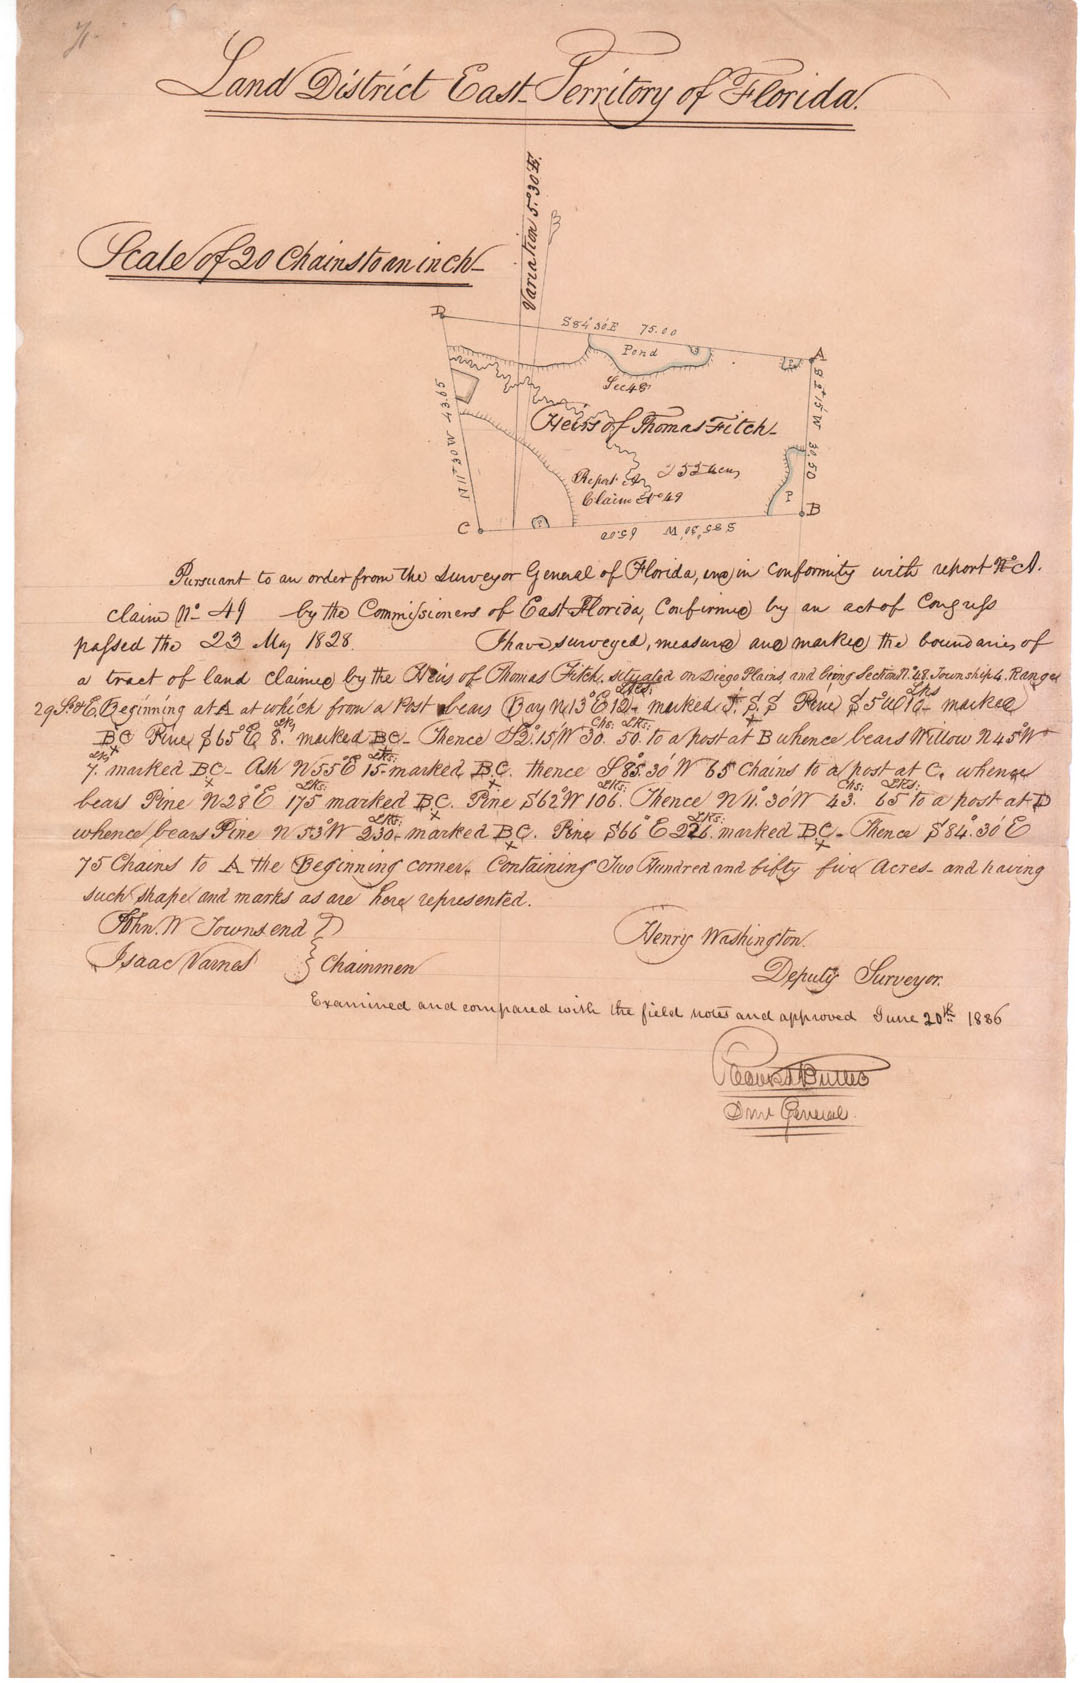 Land District East Territory of Florida.
Variation 5.°30'E.
Scale of 20 Chains to an inch
D
S84°30'E 75.00
Pond
A
Sec 48
S 2°15'W 30.50
N 11°30'W 43.65
Heirs of Thomas Fitch
255 Acres
Report A
Claim No 49
P
B
C
S 85°30' W 65.00
Pursuant to an order from the Surveyor General of Florida, and in conformity with report No A.
claim No 49 by the Commissioners of East Florida, Confirmed by an act of Congress
passed the 23 May 1828. I have surveyed, measured and marked the boundaries of
a tract of land claimed by the Heirs of Thomas Fitch. situated on Diego Plains, and being Section No 48. Township 4. Range
29 S & E. Beginning at A at which from a Post bears Bay N 13°E 12 Lks. marked Pine S 5° W 10 Lks marked
BC Pine S 65°E 8. Lks marked BC. Thence S 2°.15'W 30. Chs: 50. Lks: to a post at B whence bears Willow N 45°W
7. Lks marked BC Ash N 55°E 15 Lks: marked BC. thence S 85°.30'W 65 Chains to a post at C. whence
bears Pine N 28°E 175 Lks: marked BC. Pine S 62°W 106. Lks: Thence N 11°.30'W 43. Chs: 65 Lks: to a post at D
whence bears Pine N 53°W 230 Lks: marked BC. Pine S 66°E 226 Lks: marked BC. Thence S 84°.30'E
75 Chains to A the Beginning corner. Containing Two Hundred and fifty five Acres and having
such shape and marks as are here represented.
John. W Townsend
Isaac Varnes } Chainmen
Henry Washington.
Deputy Surveyor.
Examined and compared with the field notes and approved June 20th 1836
Robert Butler
Surv General